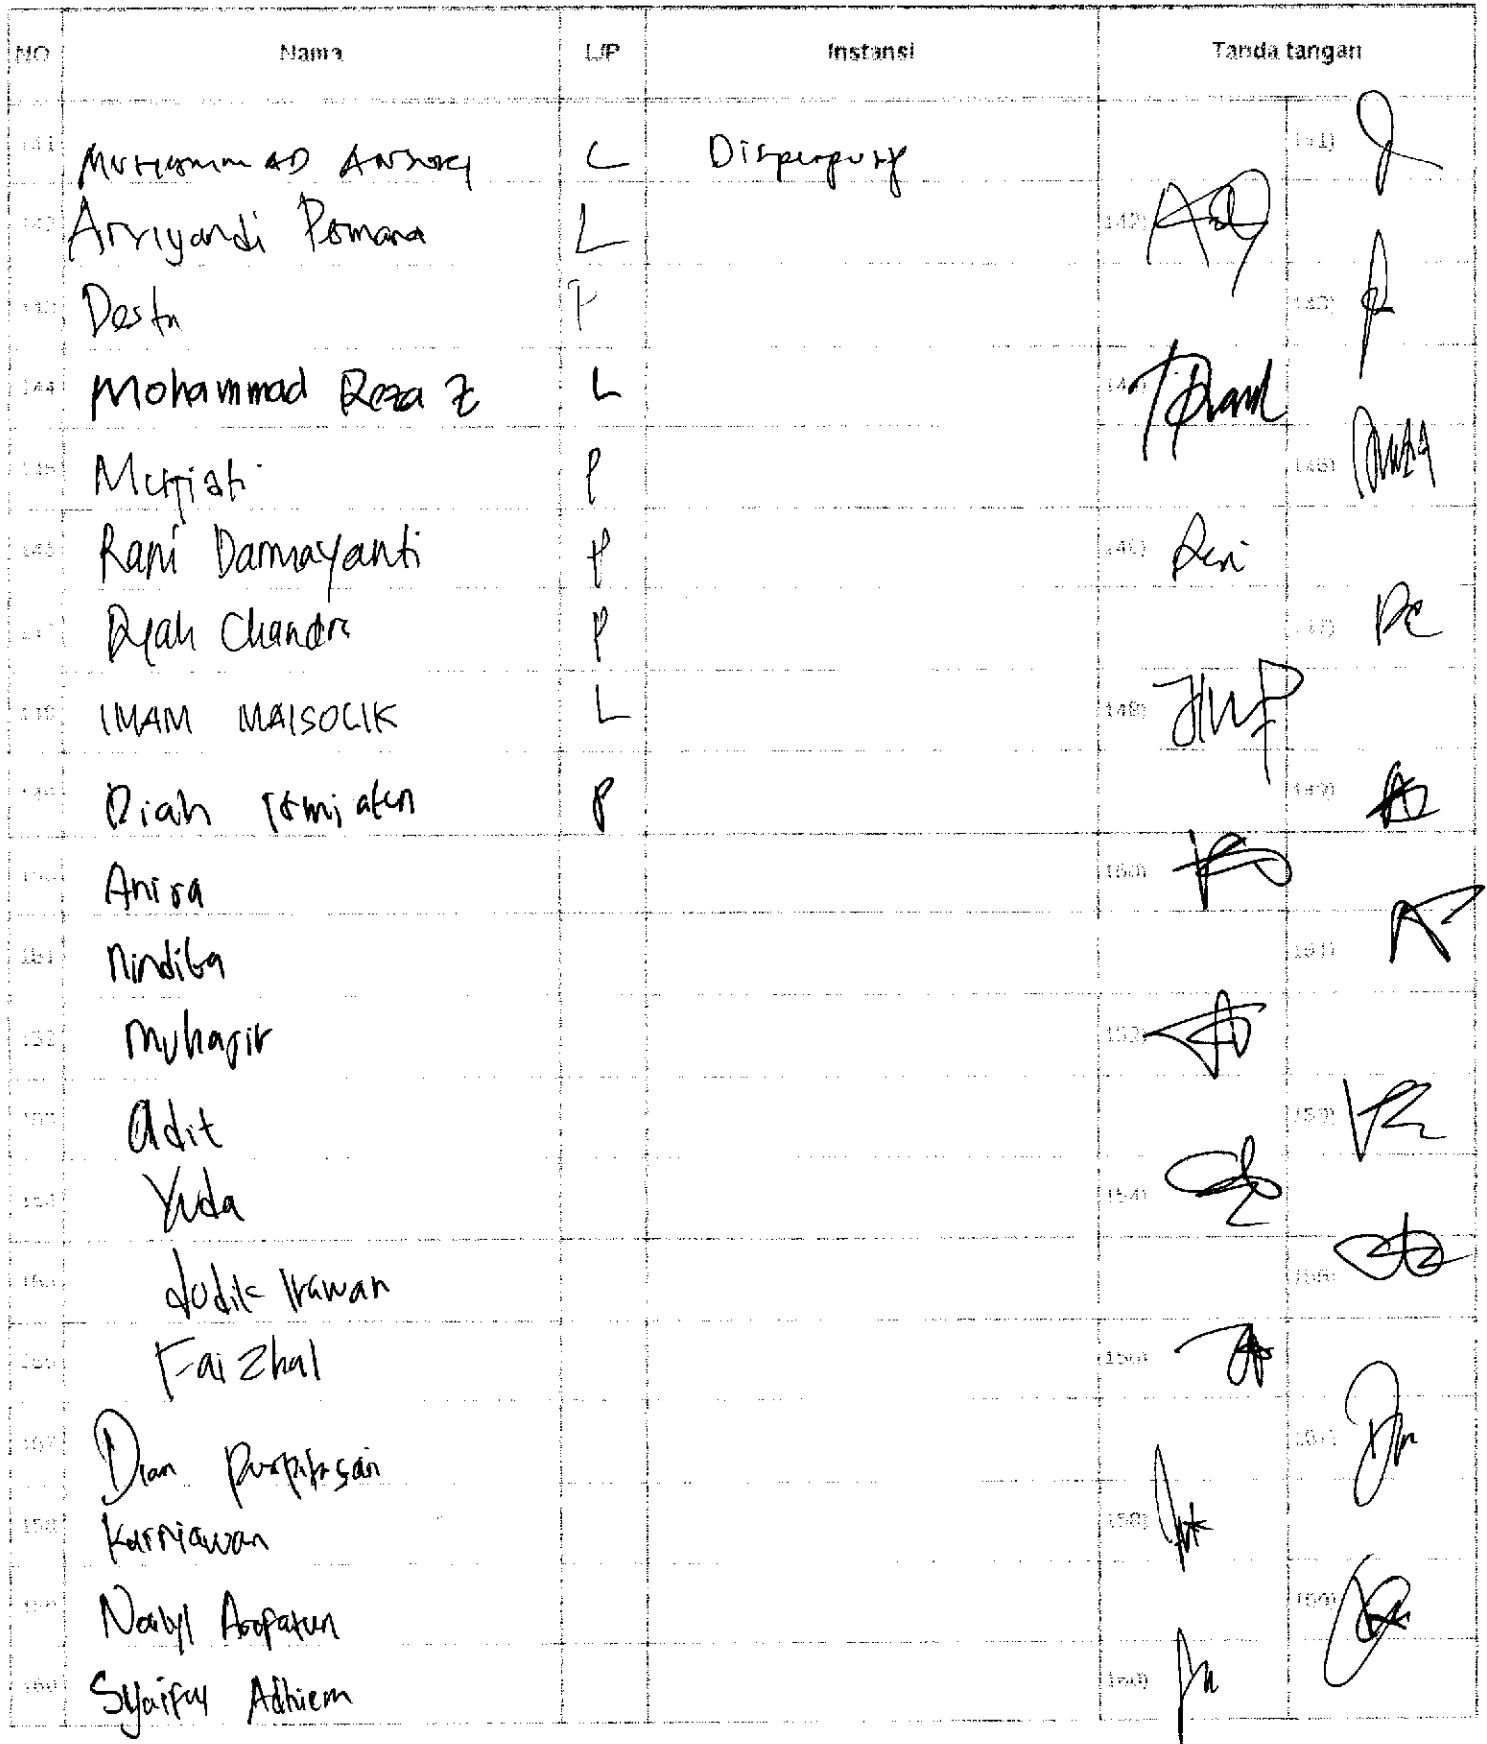 NO Nama L/P Instansi Tanda tangan
141 MUHAMMAD ANSHORY L 141)
142 Arriyandi Permana L 142)
143 Desta P 143)
144 Mohammad Reza Z L 144)
145 Murjiati P 145)
146 Rani Darmayanti P 146) Rani
147 Dyah Chandra P 147) DC
148 IMAM MAISOLIK L 148)
149 Diah P 149)
150 Anisa 150)
151 Nindiba 151)
152 Muhajir 152)
153 Adit 153)
154 Yuda 154)
155 dodik Irawan 155)
156 Faizhal 156)
157 Dian Puspitasari 157)
158 Kurniawan 158)
159 159)
160 Adhiem 160)